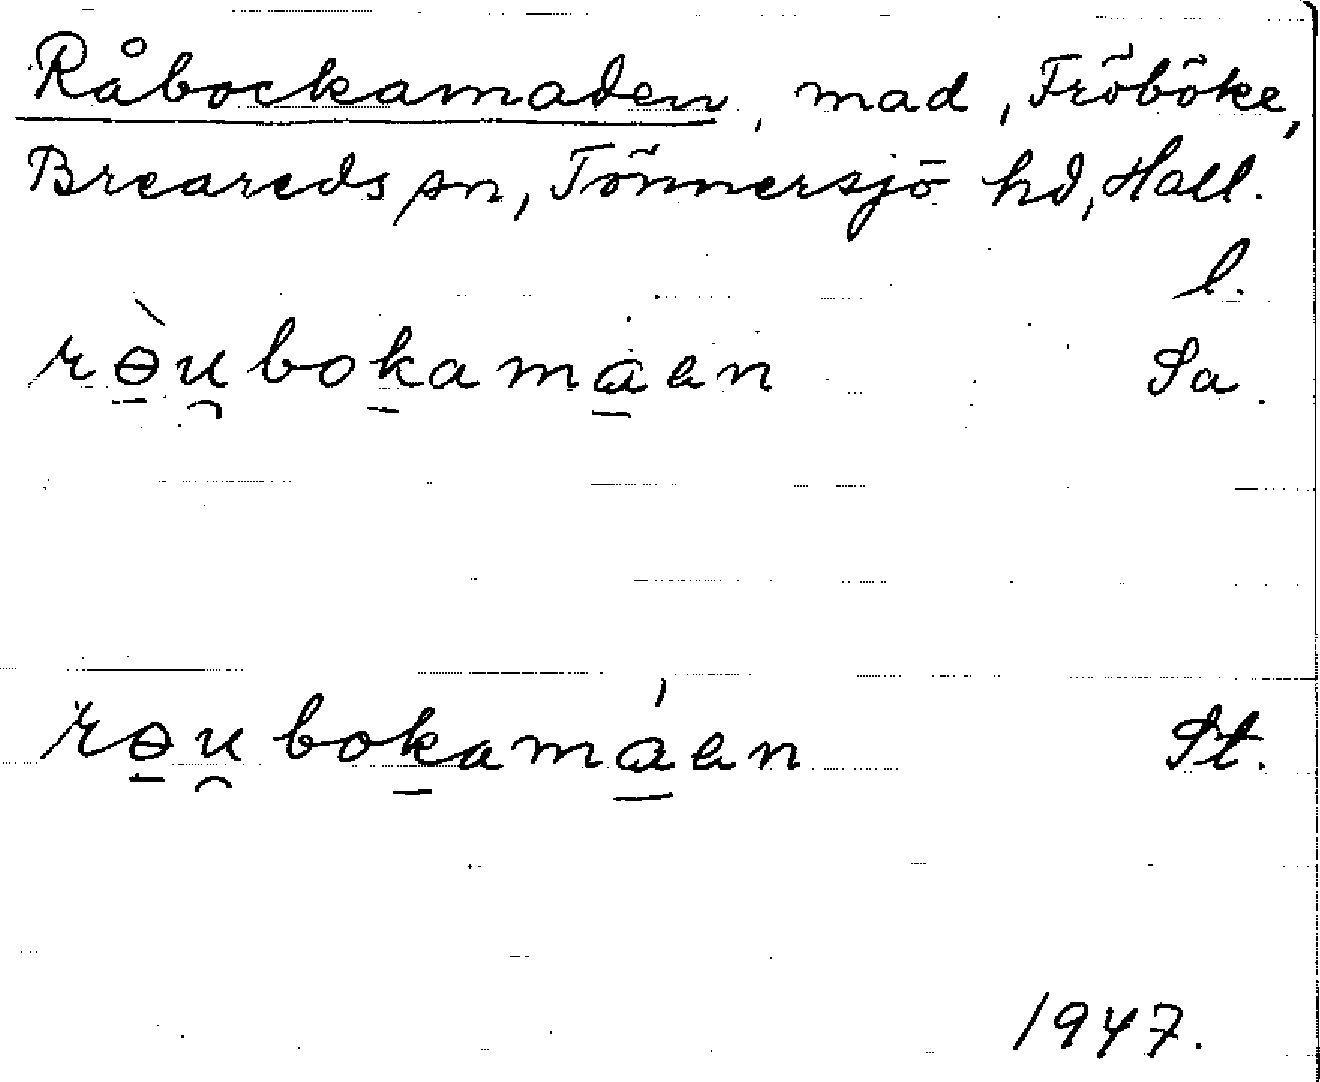 Råbockamaden, mad, Fröböke,
Breareds sn, Tönnersjö hd, Hall.
l.
rɵ̠̀u̯bok̠ama̠en Sa.
rɵ̠u̯bok̠amá̠en St.
1947.